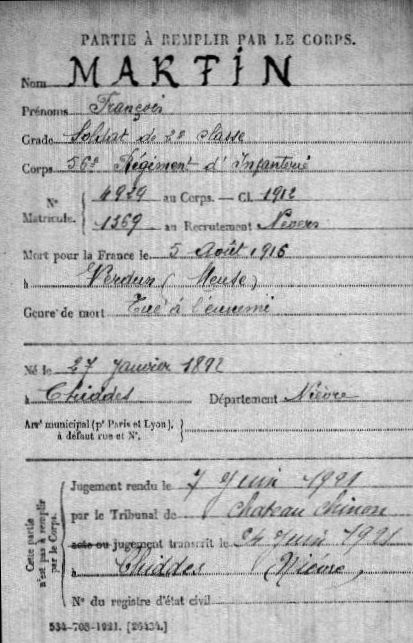 PARTIE À REMPLIR PAR LE CORPS.
Nom MARTIN
Prénoms François
Grade Soldat de 2e classe
Corps 56e Régiment d'Infanterie
N° Matricule. { 4929 au Corps. — Cl. 1912
1369 au Recrutement Nevers
Mort pour la France le 5 Août 1916
à Verdun (Meuse)
Genre de mort Tué à l'ennemi
Né le 27 Janvier 1892
à Chiddes Département Nièvre
Arrt municipal (pr Paris et Lyon), à défaut rue et N°. }
Cette partie n'est pas à remplir par le Corps.
Jugement rendu le 7 Juin 1921
par le Tribunal de Chateau Chinon
acte ou jugement transcrit le 24 Juin 1921
à Chiddes (Nièvre)
N° du registre d'état civil
534-708-1921. [26434.]